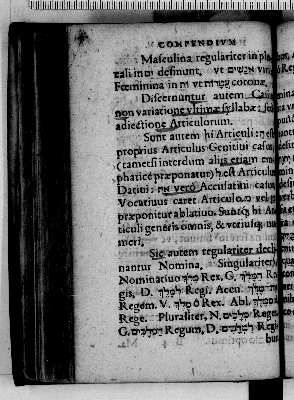 COMPENDIVM
Masculina regulariter in plu
rali in ים desinunt, vt אנשים viri
Fœminina in ות vt עטרות coronæ.
Discernuntur autem Casus
non variatione vltimæ syllabæ: sed
adiectione Articulorum.
Sunt autem hi Articuli: ה est
proprius Articulus Genitiui casus,
(tametsi interdum alis etiam em
phaticè præponatur) ל est Articulus
Datiui: את verò Accusatiui casus,
Vocatiuus caret Articulo. מ verò
præponitur ablatiuo. Suntq; hi Ar
ticuli generis omnis, & vtriusq; nu
meri.
Sic autem regulariter decli
nantur Nomina. Singulariter,
Nominatiuo מלך Rex. G. המלך Re
gis, D. למלך Regi. Accu. את מלך
Regem. V. מלך ô Rex. Abl. ממלך
Rege. Pluraliter, N. מלכים Reges
G. המלכים Regum, D. למלכים Regi
bus